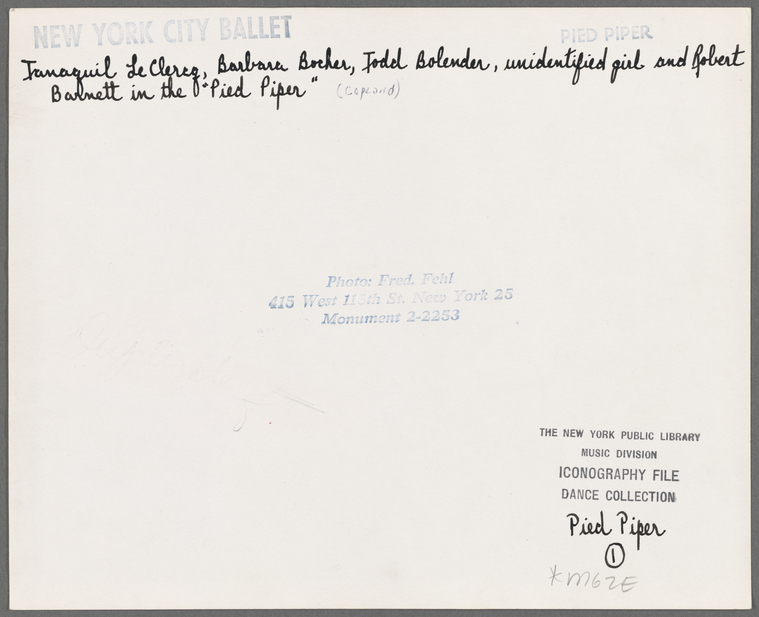 NEW YORK CITY BALLET
PIED PIPER
Tanaquil LeClercq, Barbara Bocher, Todd Bolender, unidentified girl and Robert
Barnett in the "Pied Piper" (Copland)
Photo: Fred. Fehl
415 West 115th St. New York 25
Monument 2-2253
THE NEW YORK PUBLIC LIBRARY
MUSIC DIVISION
ICONOGRAPHY FILE
DANCE COLLECTION
Pied Piper
1
*MGZE